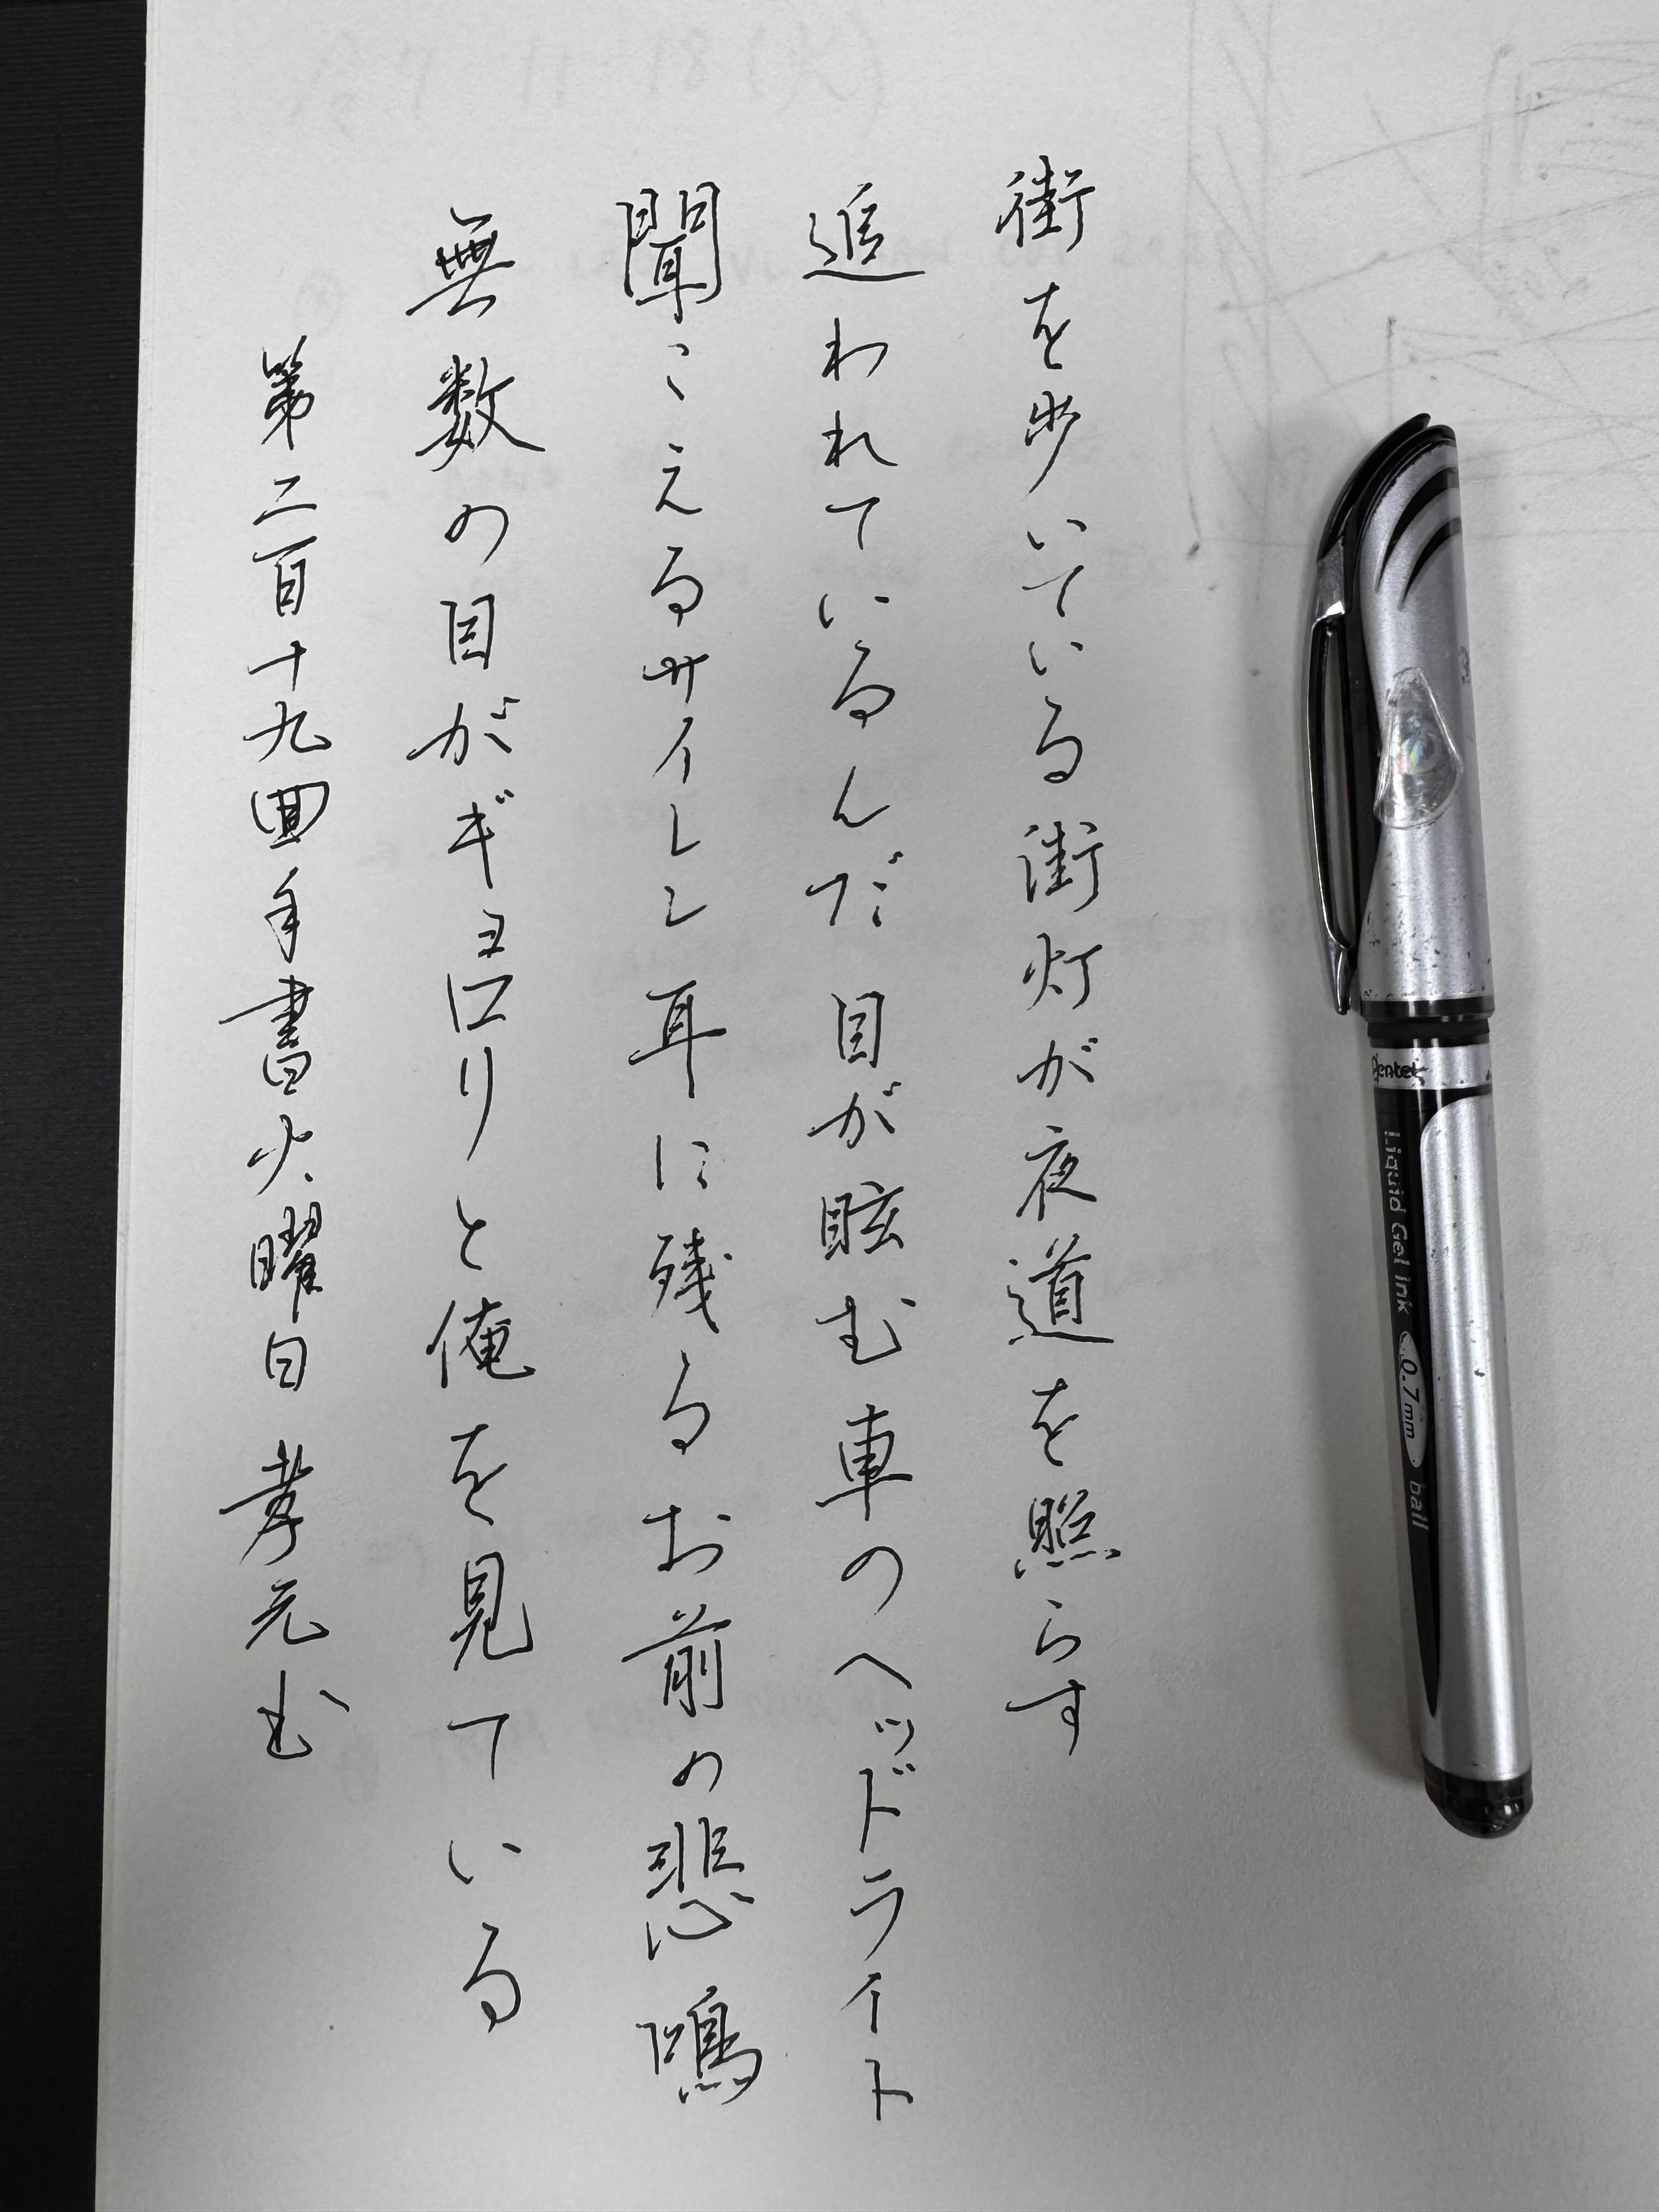 街を歩いている街灯が夜道を照らす
追われているんだ 目が眩む車のヘッドライト
聞こえるサイレン 耳に残るお前の悲鳴
無数の目がギョロリと俺を見ている
第二百十九回手書火曜日 孝元む
Pentel
Liquid Gel ink 0.7mm ball